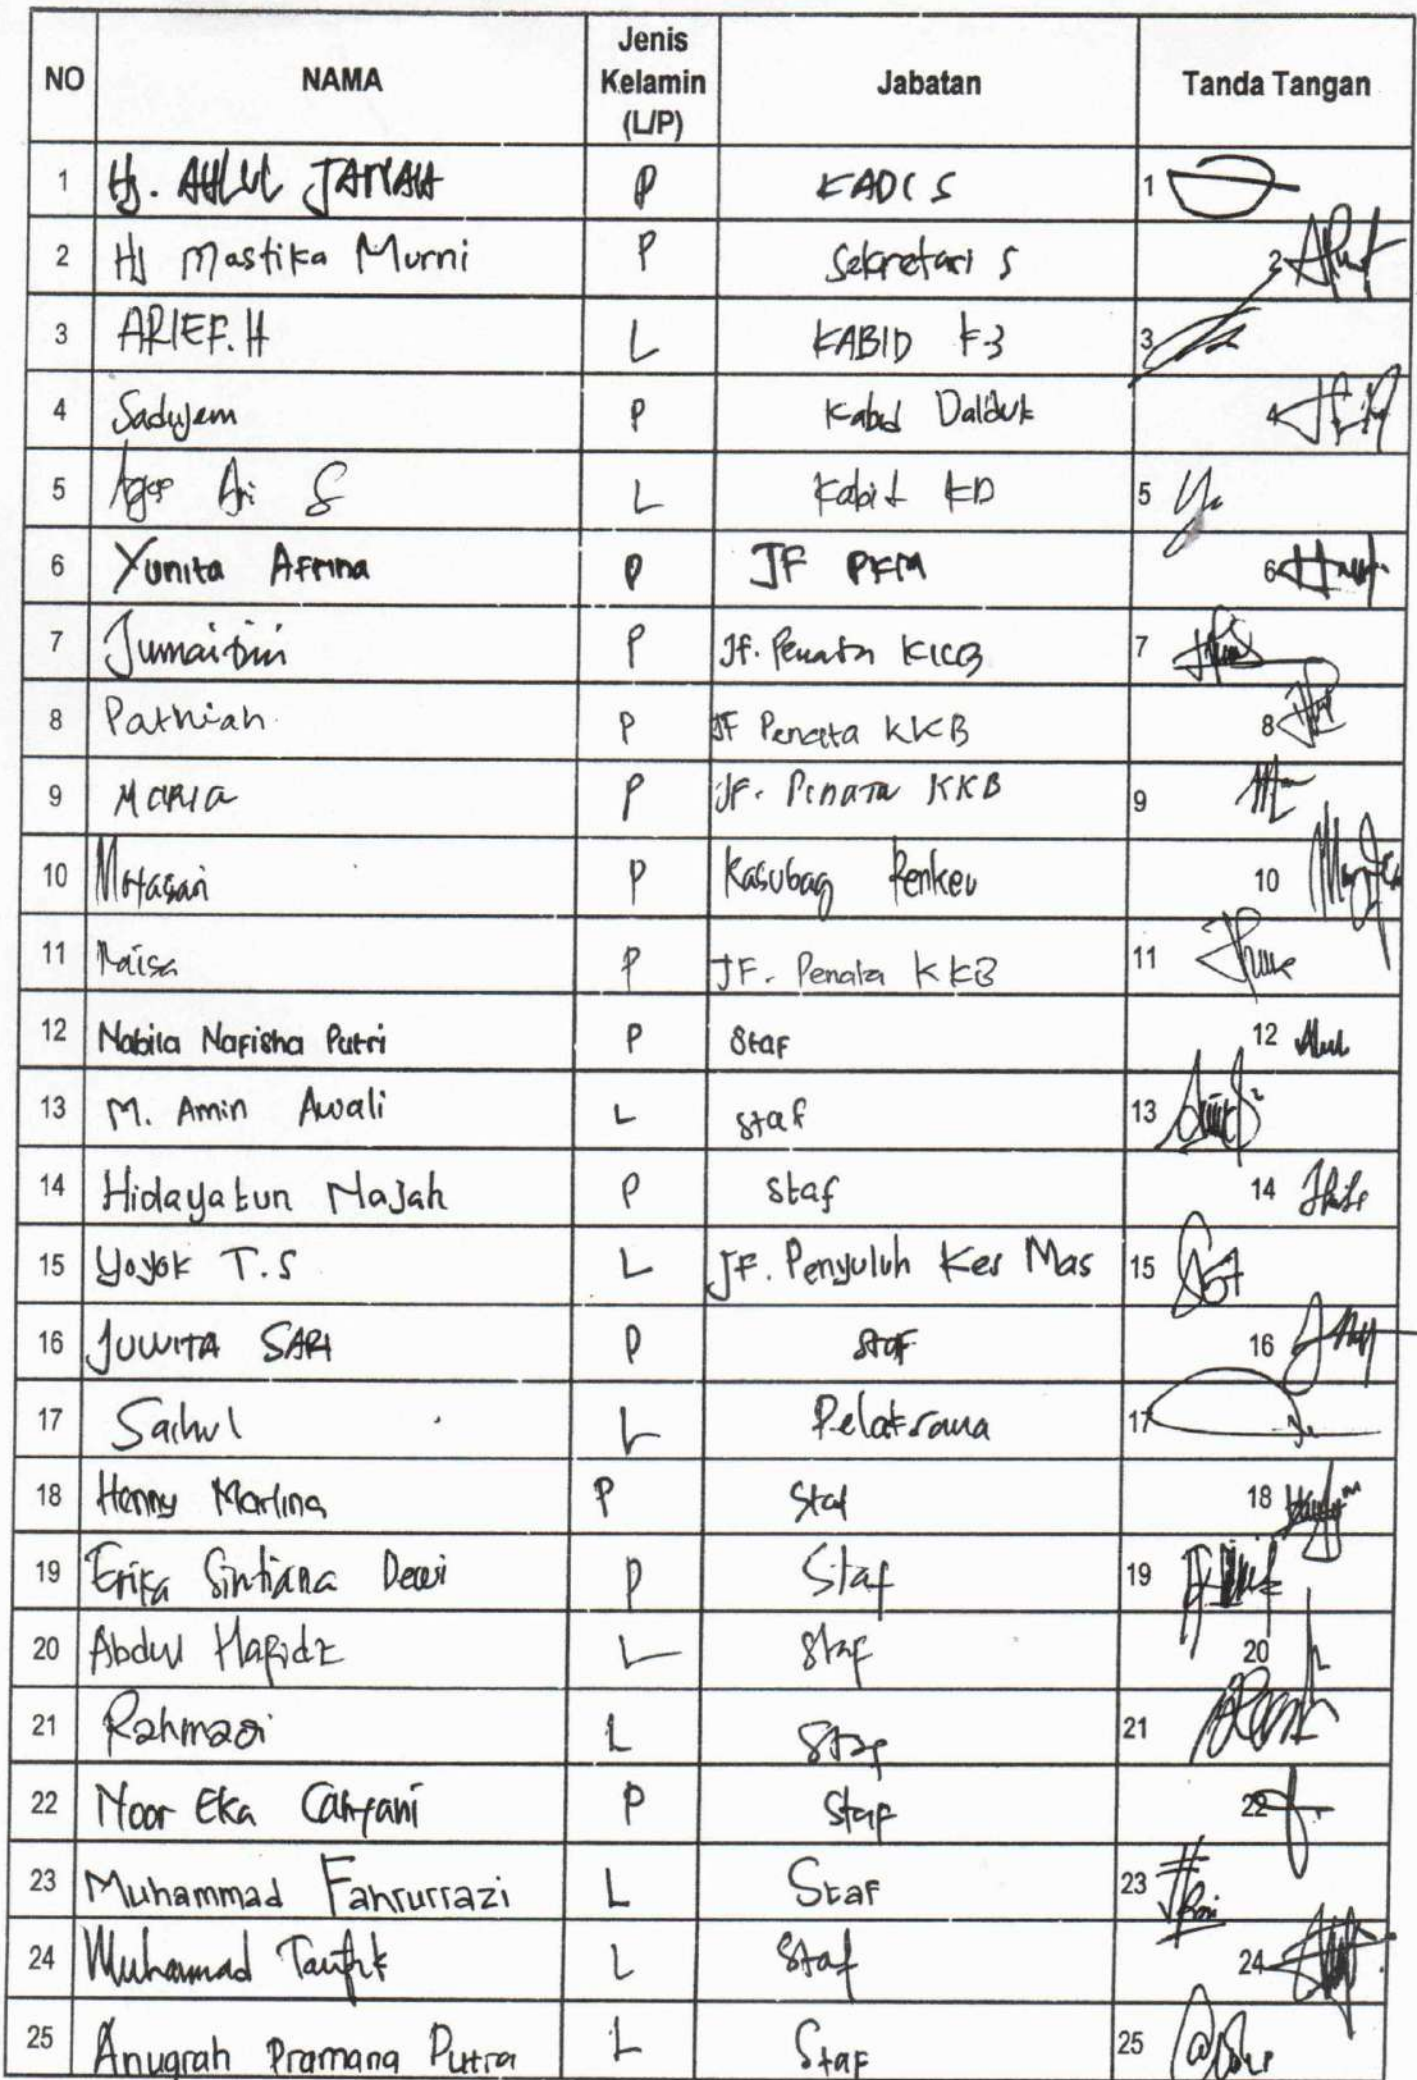 NO NAMA Jenis Kelamin (L/P) Jabatan Tanda Tangan
1 Hj. AHLUL JANNAH P KADIS 1
2 Hj Mastika Murni P Sekretaris 2
3 ARIEF. H L KABID K3 3
4 Sadujem P Kabid Dalduk 4
5 Agus Ari S L Kabit KD 5
6 Yunita Afrina P JF PKM 6
7 Jumaitini P Jf. Penata KKB 7
8 Pathiah P JF Penata KKB 8
9 Maria P JF. Penata KKB 9
10 P Kasubag Renkeu 10
11 Raisa P JF. Penata KKB 11
12 Nabila Nafisha Putri P Staf 12
13 M. Amin Awali L Staf 13
14 Hidayatun Najah P Staf 14
15 Yoyok T.S L JF. Penyuluh Kes Mas 15
16 JUWITA SARI P Staf 16
17 Saihul L Pelaksana 17
18 Henny Marlina P Staf 18
19 Erika Sintiana Dewi P Staf 19
20 Abdul Hafidz L Staf 20
21 Rahmadi L Staf 21
22 Noor Eka Cahyani P Staf 22
23 Muhammad Fahrurrazi L Staf 23
24 Muhammad Taufik L Staf 24
25 Anugrah Pramana Putra L Staf 25